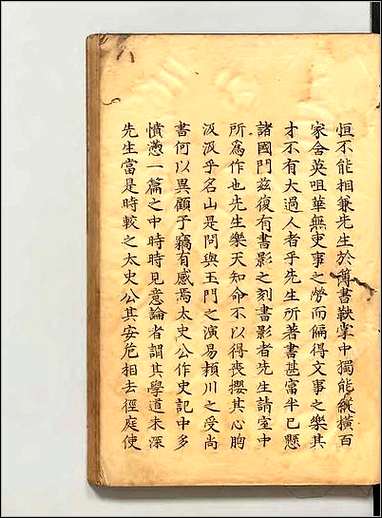 恒不能相兼先生於薄書鞅掌中獨能縱橫百
家含英咀華無吏事之勞而偏得文事之樂其
才不有大過人者乎先生所著書甚富半已懸
諸國門茲復有書影之刻書影者先生請室中
所爲作也先生樂天知命不以得喪攖其心胷
汲汲乎名山是問與玉門之演易頴川之受尚
書何以異顧予竊有感焉太史公作史記中多
憤懑一篇之中時時見意論者謂其學道未深
先生當是時較之太史公其安危相去徑庭使